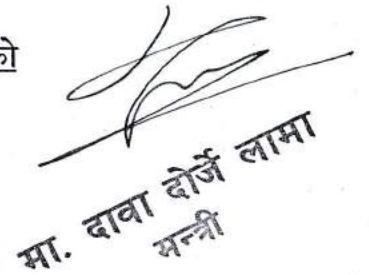 को
मा. दावा दोर्जे लामा
मन्त्री